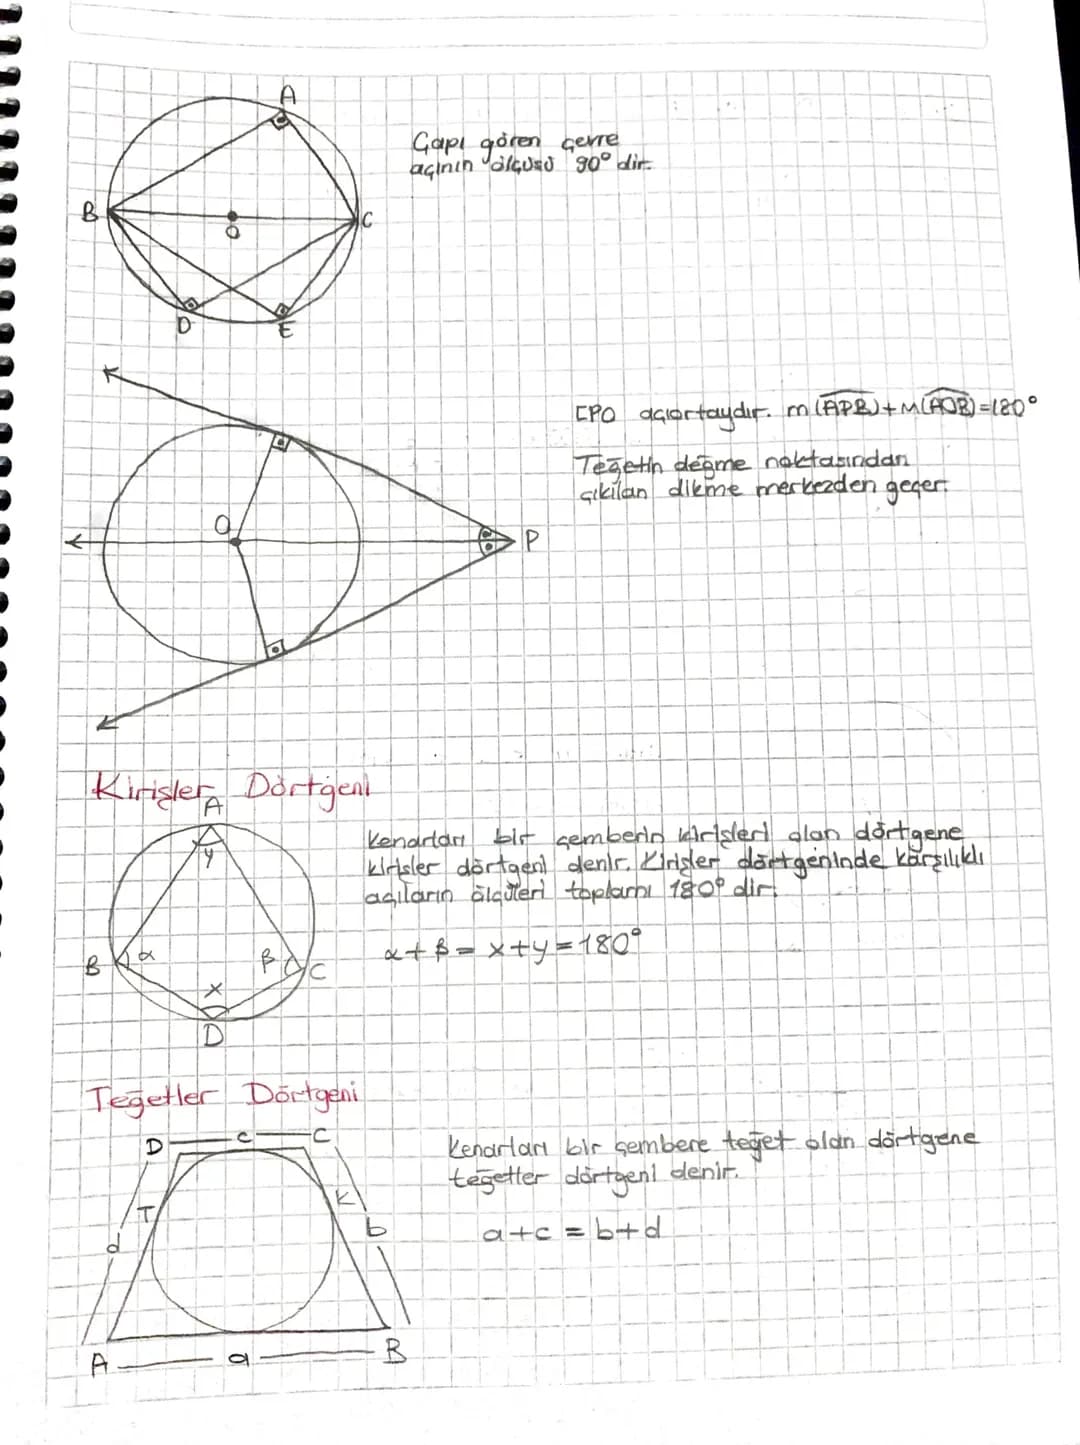 A
Çapı gören çevre
açının ölçüsü 90° dir.
B
O
C
D
E
[PO açıortaydır. m(APB)+m(AOB)=180°
Teğetin değme noktasından
çıkılan dikme merkezden geçer.
O
P
Kirişler Dörtgeni
A
Kenarları bir çemberin kirişleri olan dörtgene
kirişler dörtgeni denir. Kirişler dörtgeninde karşılıklı
açıların ölçüleri toplamı 180° dir.
y
B
α
β
C
α+β=x+y=180°
x
D
Teğetler Dörtgeni
D
c
C
Kenarları bir çembere teğet olan dörtgene
teğetler dörtgeni denir.
T
K
d
b
a+c=b+d
A
a
B